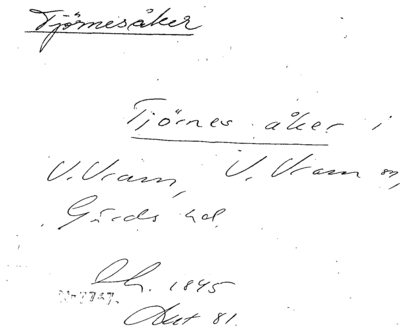 Tjörnesåker
Tjörnes åker i
V. Vram, V. Vram sn,
Gärds hd.
1845
Akt 81.